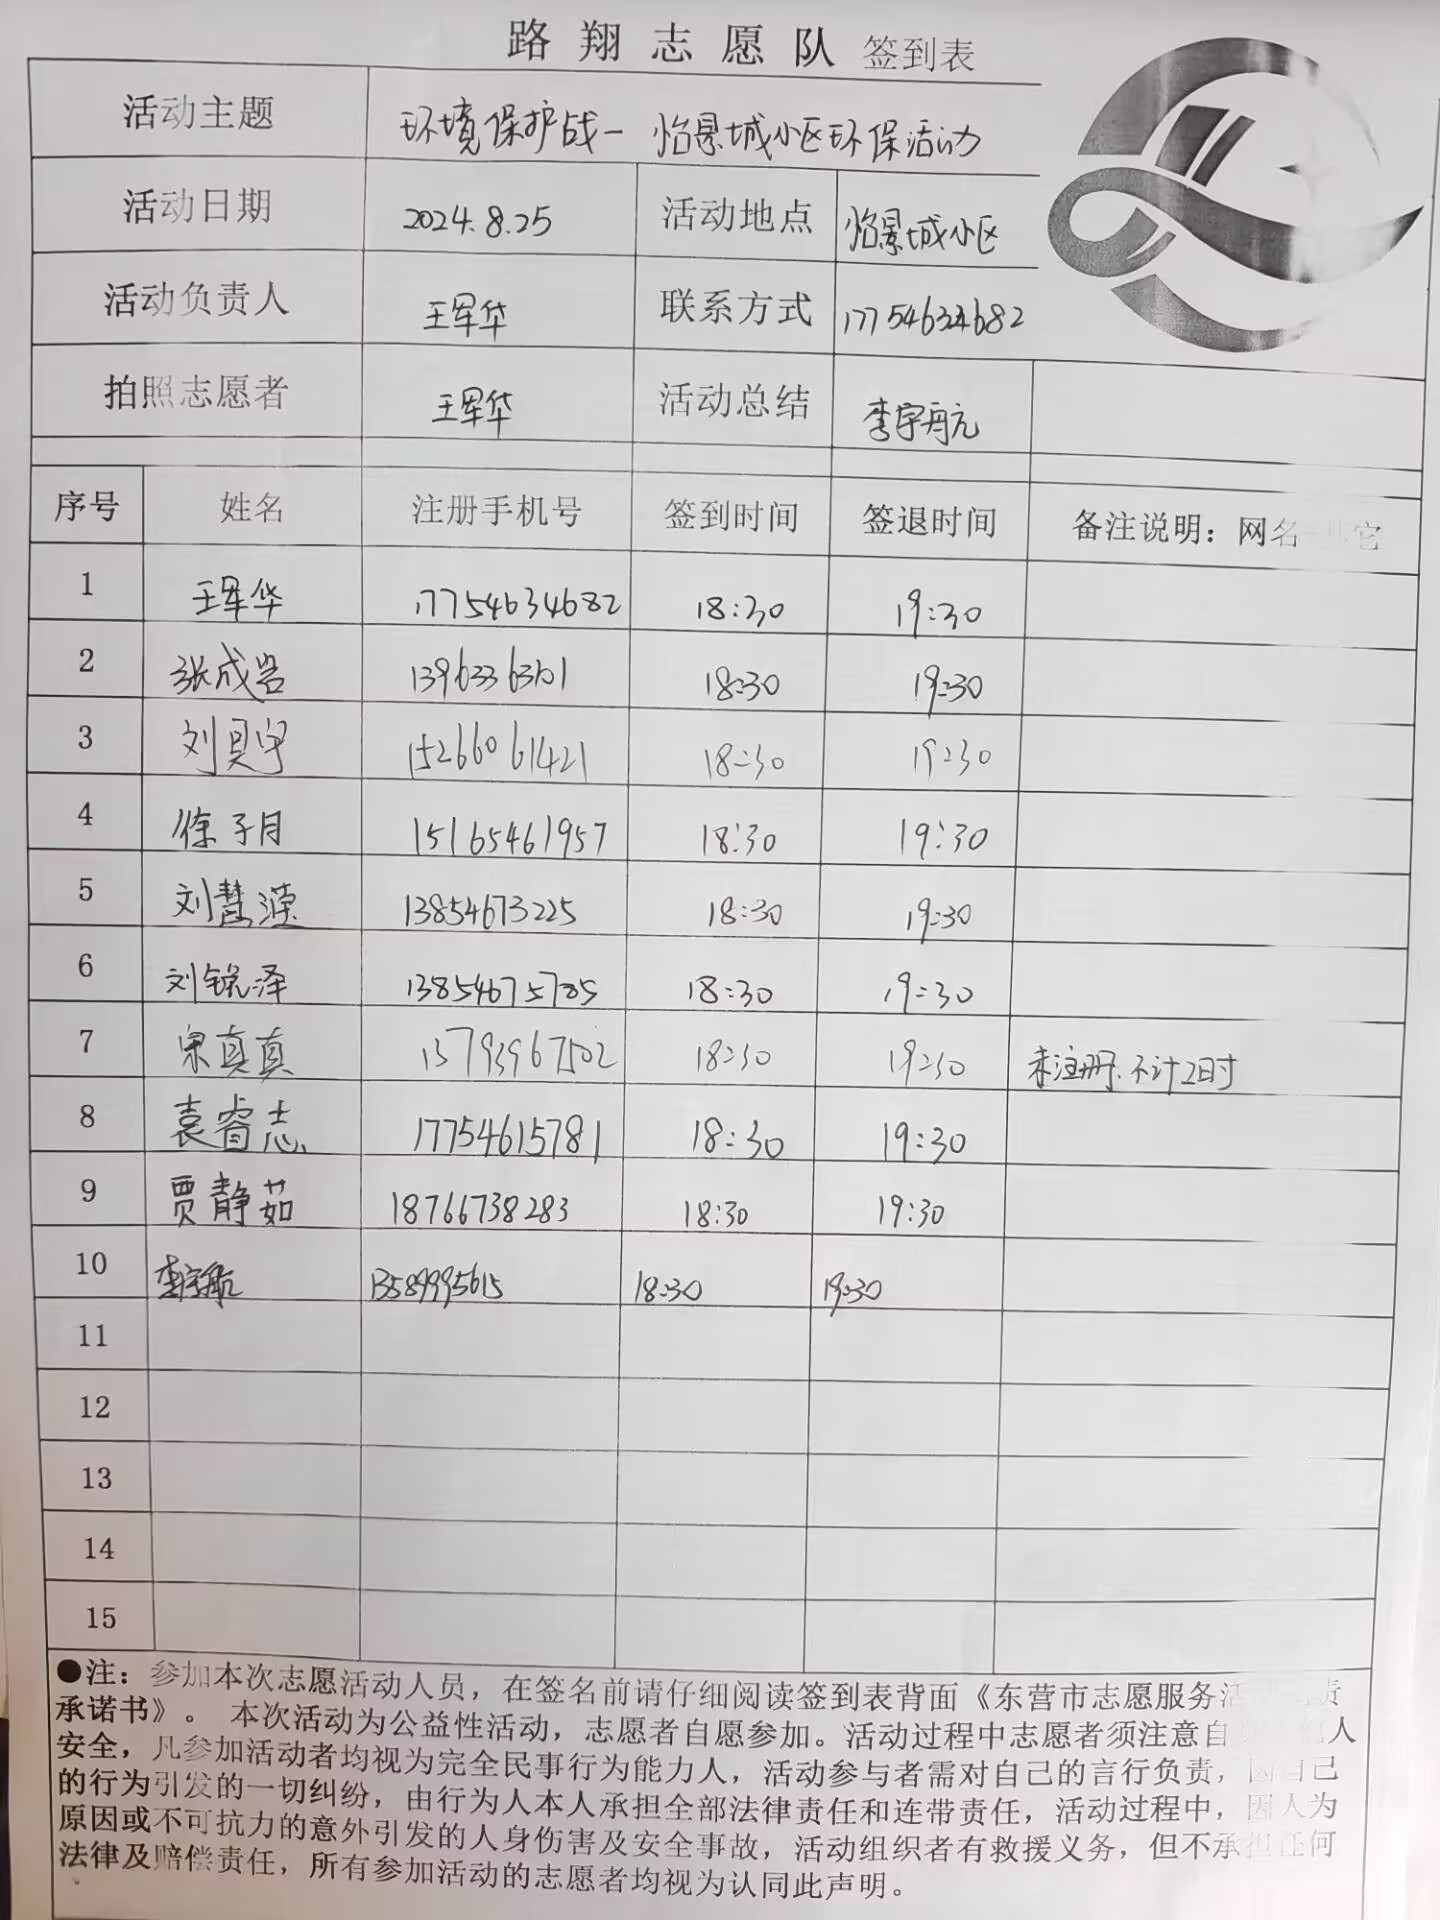 路翔志愿队 签到表
活动主题 环境保护战一 怡景城小区环保活动
活动日期 2024.8.25 活动地点 怡景城小区
活动负责人 王军华 联系方式 17754634682
拍照志愿者 王军华 活动总结 李宇航
序号 姓名 注册手机号 签到时间 签退时间 备注说明：网名 其它
1 王军华 17754634682 18:30 19:30
2 张成岩 18:30 19:30
3 刘贝宁 15266061421 18:30 19:30
4 徐子月 15165461957 18:30 19:30
5 刘慧滢 13854673225 18:30 19:30
6 刘铭泽 13854675785 18:30 19:30
7 宋真真 13793967502 18:30 19:30 未注册.不计2日寸
8 袁睿志 17754615781 18:30 19:30
9 贾静茹 18766738283 18:30 19:30
10 李宇航 13589995615 18:30 19:30
11
12
13
14
15
●注：参加本次志愿活动人员，在签名前请仔细阅读签到表背面《东营市志愿服务活 责
承诺书》。 本次活动为公益性活动，志愿者自愿参加。活动过程中志愿者须注意自 他人
安全，凡参加活动者均视为完全民事行为能力人，活动参与者需对自己的言行负责，因自己
的行为引发的一切纠纷，由行为人本人承担全部法律责任和连带责任，活动过程中，因人为
原因或不可抗力的意外引发的人身伤害及安全事故，活动组织者有救援义务，但不承担任何
法律及赔偿责任，所有参加活动的志愿者均视为认同此声明。